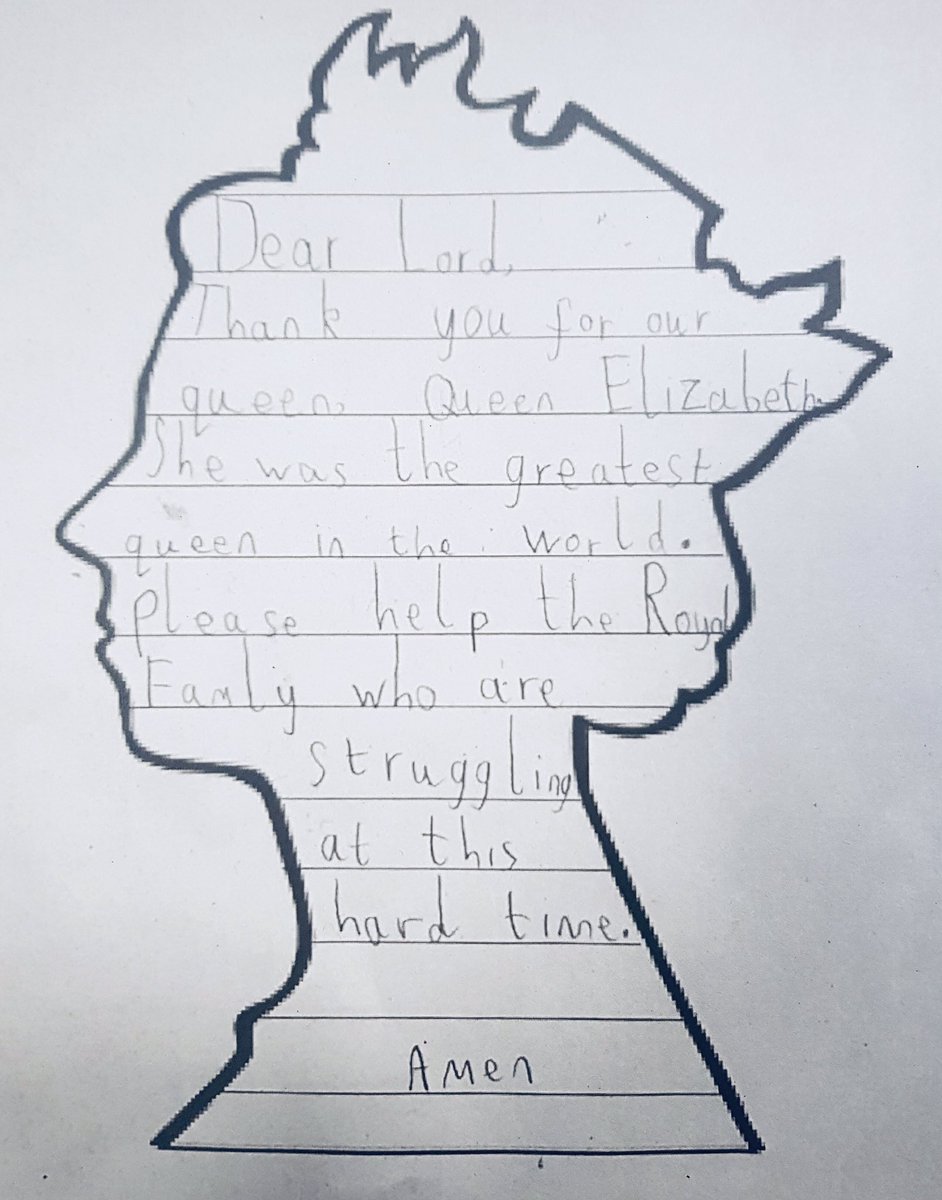 Dear Lord,
Thank you for our
queen, Queen Elizabeth.
She was the greatest
queen in the world.
please help the Royal
Famly who are
struggling
at this
hard time.
Amen